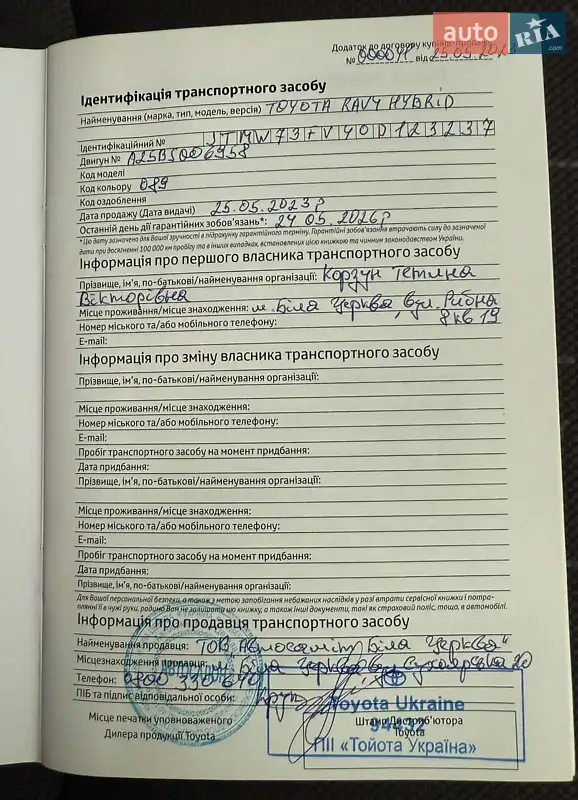 auto RIA.com
Додаток до договору купівлі-продажу
№ 000041 від 25.05.2023
Ідентифікація транспортного засобу
Найменування (марка, тип, модель, версія) TOYOTA RAV4 HYBRID
Ідентифікаційний № JTMW73FV40D123237
Двигун № A25BS006958
Код моделі
Код кольору 089
Код оздоблення
Дата продажу (Дата видачі) 25.05.2023р
Останній день дії гарантійних зобов'язань*: 24.05.2026р
* Цю дату зазначено для Вашої зручності в підрахунку гарантійного терміну. Гарантійні зобов'язання втрачають силу до зазначеної
дати при досягненні 100 000 км пробігу та в інших випадках, встановлених цією книжкою та чинним законодавством України.
Інформація про першого власника транспортного засобу
Прізвище, ім'я, по-батькові/найменування організації: Корзун Тетяна
Вікторівна
Місце проживання/місце знаходження: м. Біла Церква, вул. Рибна
Номер міського та/або мобільного телефону: 8 кв 19
E-mail:
Інформація про зміну власника транспортного засобу
Прізвище, ім'я, по-батькові/найменування організації:
Місце проживання/місце знаходження:
Номер міського та/або мобільного телефону:
E-mail:
Пробіг транспортного засобу на момент придбання:
Дата придбання:
Прізвище, ім'я, по-батькові/найменування організації:
Місце проживання/місце знаходження:
Номер міського та/або мобільного телефону:
E-mail:
Пробіг транспортного засобу на момент придбання:
Дата придбання:
Прізвище, ім'я, по-батькові/найменування організації:
Для Вашої персональної безпеки, а також з метою запобігання небажаних наслідків у разі втрати сервісної книжки і потра-
плянні її в чужі руки, радимо Вам не залишати цю книжку, а також інші документи, такі як страховий поліс, тощо, в автомобілі.
Інформація про продавця транспортного засобу
Найменування продавця: ТОВ "Автосаміт Біла Церква"
Місцезнаходження продавця: м. Біла Церква вул. 20
Телефон: 0800 330 640
ПІБ та підпис відповідальної особи:
Toyota Ukraine
Місце печатки уповноваженого
Штамп Дистриб'ютора
94432
Дилера продукції Toyota
Toyota
ПІІ «Тойота Україна»